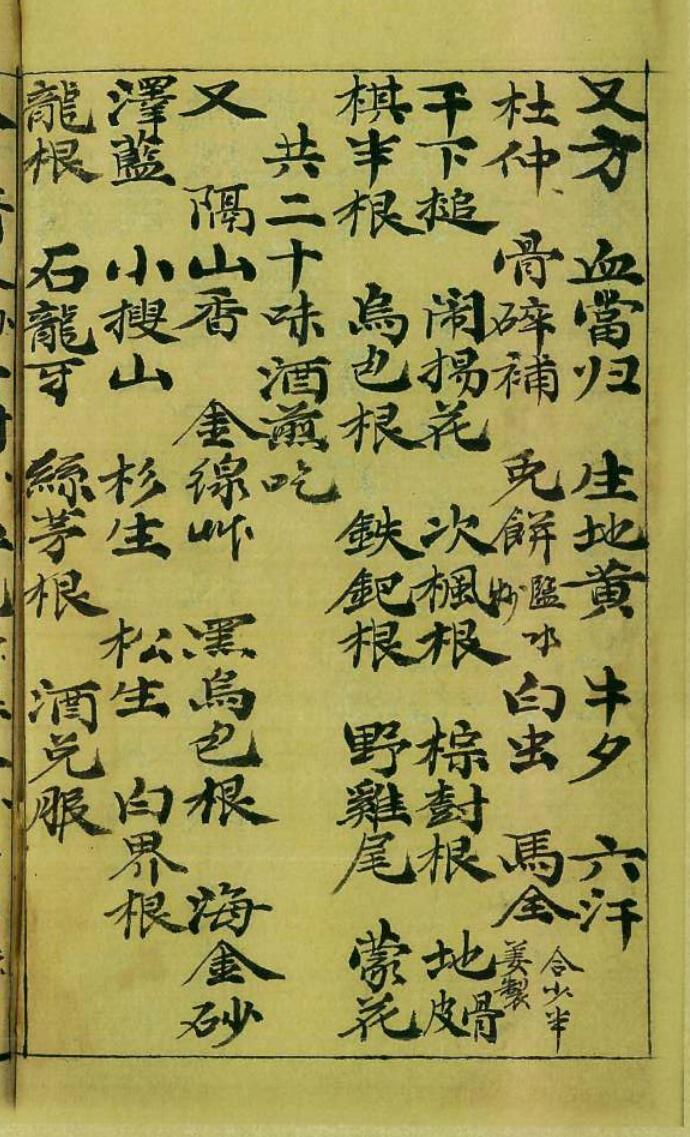 又方 血當归 生地黄 牛夕 六汗
杜仲 骨碎補 免餅 監水炒 白虫 馬全 姜製 合少半
千下槌 闹揚花 次楓根 棕封根 地骨皮
棋半根 烏包根 鉄鈀根 野雞尾 蒙花
共二十味酒煎吃
又 隔山香 金線艸 黑烏包根 海金砂
澤藍 小搜山 杉生 松生 白界根
龍根 石龍牙 絲茅根 酒兑服